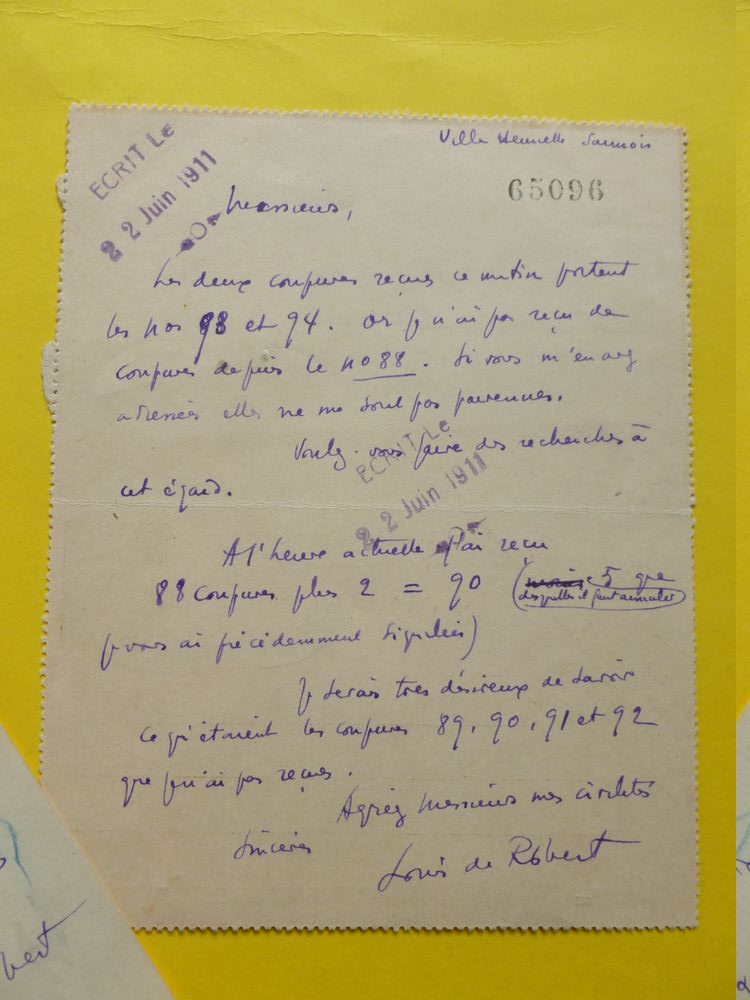 ECRIT Le
22 Juin 1911
Villa Henriette Sannois
65096
Messieurs,
Les deux coupures reçues ce matin portent
les nos 93 et 94. Or je n'ai pas reçu de
coupures depuis le no 88. Si vous m'en avez
adressées elles ne me sont pas parvenues.
Voulez-vous faire des recherches à
cet égard.
ECRIT Le
22 Juin 1911
A l'heure actuelle j'ai reçu
88 coupures plus 2 = 90 (moins 5 que
desquelles il faut annuler
je vous ai précédemment signalées)
Je serais très désireux de savoir
ce qu'étaient les coupures 89, 90, 91 et 92
que je n'ai pas reçues.
Agréez Messieurs mes civilités
sincères
Louis de Robert
bert